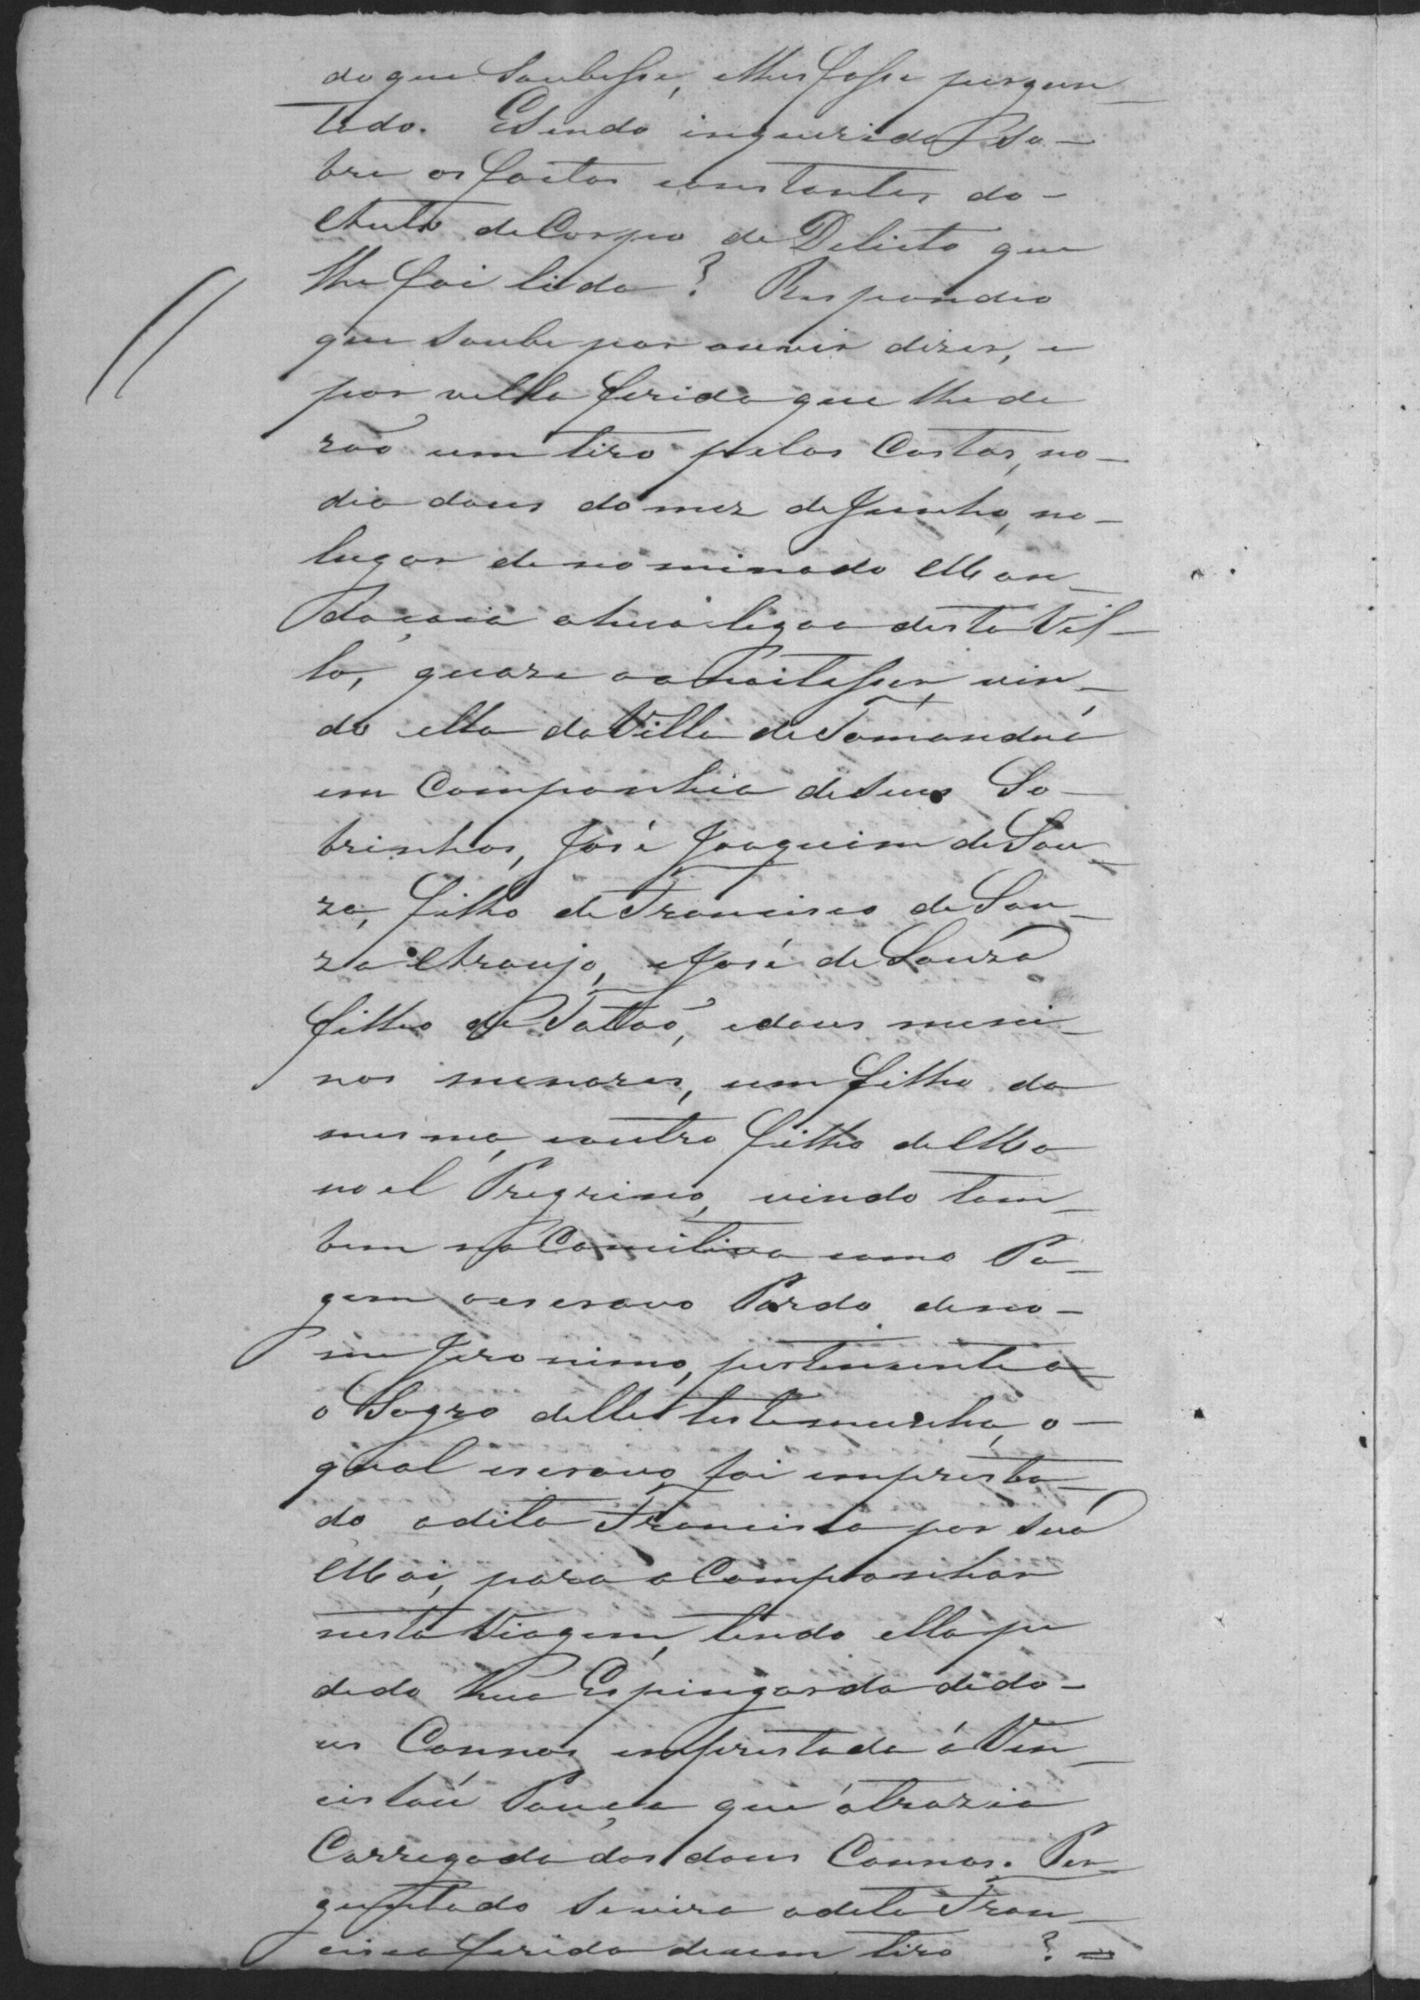 do que soubesse, elhes fosse pergun-
tado. E sendo inquerida so-
bre os factos constantes do
Auto de Corpo de Delicto que
lhe foi lido? Respondeo
que soube por ouvir dizer, e
por vella ferida que lhe de
rão um tiro pelas Costas, no
dia dous do mez de Junho, no
lugar denominado Man-
daçaia a hua legoa desta Vil-
la, quaze a anoitesser, vin-
do ella da Villa de Tamanduá
em Companhia de seus So-
brinhos, José Joaquim de Sou-
za, filho de Francisco de Sou-
za Araujo, e José de Souza
filho de Tatáo, e dous meni-
nos menores, um filho do
mesmo, e outro filho de Ma
noel Pregrino, vindo tam-
bem na Comitiva como Pa-
gem o escravo Pardo de no-
me Jeronimo, pertensente a
o Sogro delle testemunha, o
qual escravo foi empresta-
do a dita Francisca por sua
Mai, para a Companhar
nesta Viagem, tendo ella pe
dido hua Espingarda de do-
us Cannos emprestada á Ven-
que a trazia
Carregada dos dous Cannos. Per-
guntado se vira a dita Fran-
cisca ferida de um tiro? =